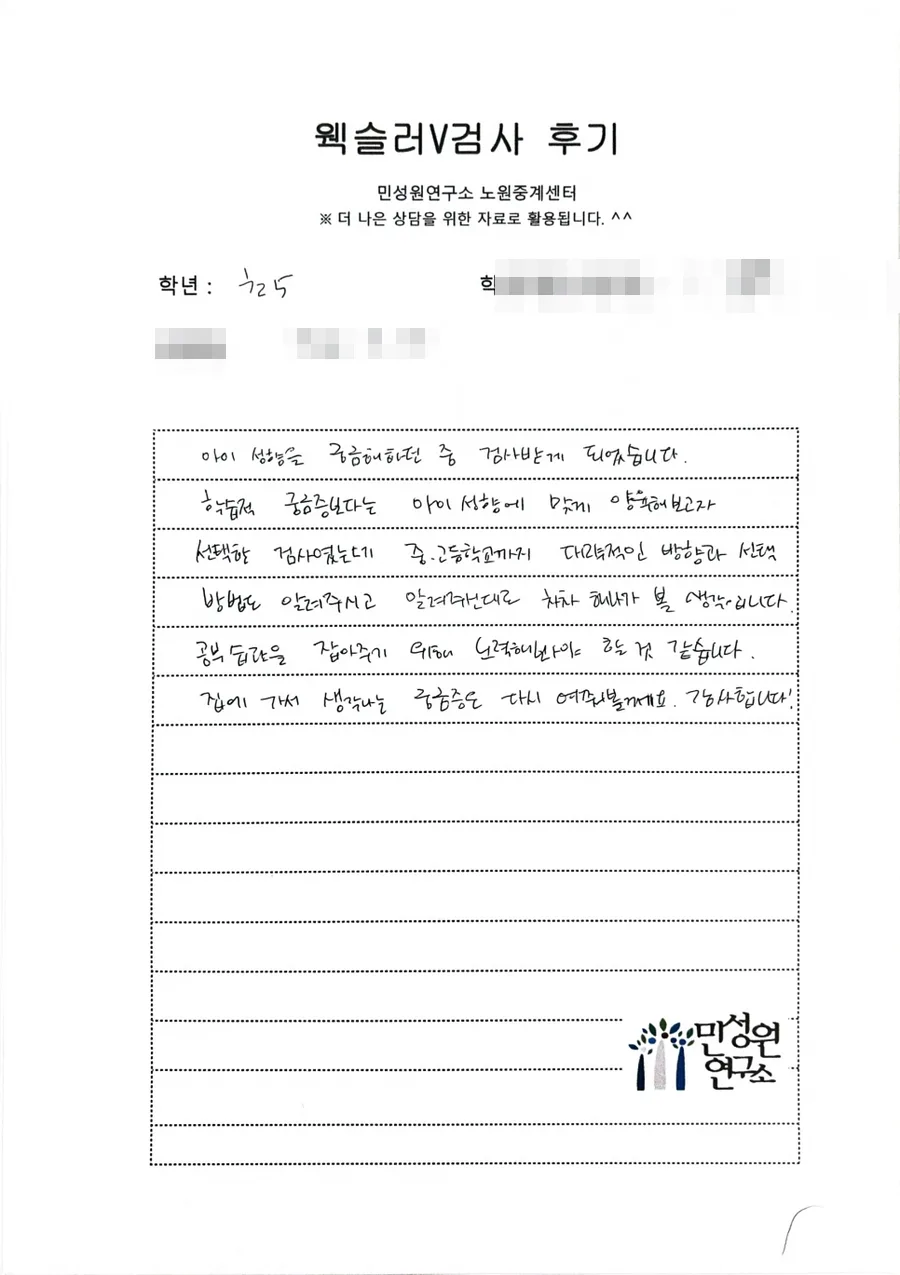 웩슬러V검사 후기
민성원연구소 노원중계센터
※ 더 나은 상담을 위한 자료로 활용됩니다. ^^
학년 : 초5 학
아이 성향을 궁금해하던 중 검사받게 되었습니다.
학습적 궁금증보다는 아이 성향에 맞게 양육해보고자
선택한 검사였는데 중.고등학교까지 대략적인 방향과 선택
방법도 알려주시고 알려주신대로 차차 해나가 볼 생각입니다.
공부 습관을 잡아주기 위해 노력해봐야 할 것 같습니다.
집에 가서 생각나는 궁금증은 다시 여쭤볼게요. 감사합니다!
민성원
연구소